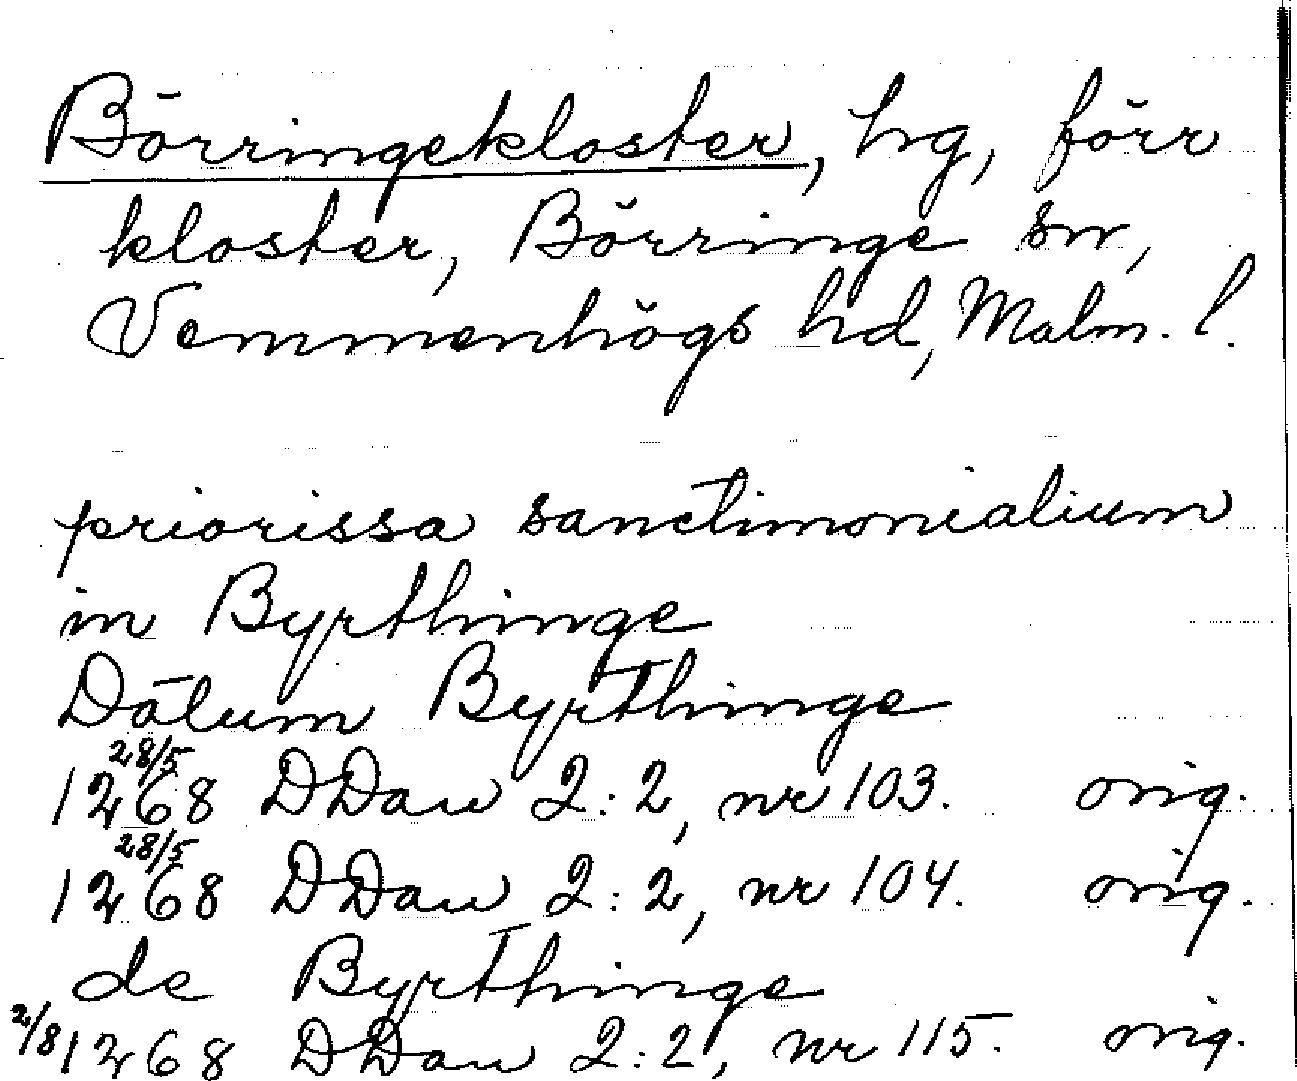 Börringekloster, hg, förr
kloster, Börringe sn,
Vemmenhögs hd, Malm. l.
priorissa sanctimonialium
in Byrthinge
Datum Byrthinge
28/5 1268 DDan 2:2, nr 103. orig.
28/5 1268 DDan 2:2, nr 104. orig.
de Byrthinge
2/8 1268 DDan 2:2, nr 115. orig.